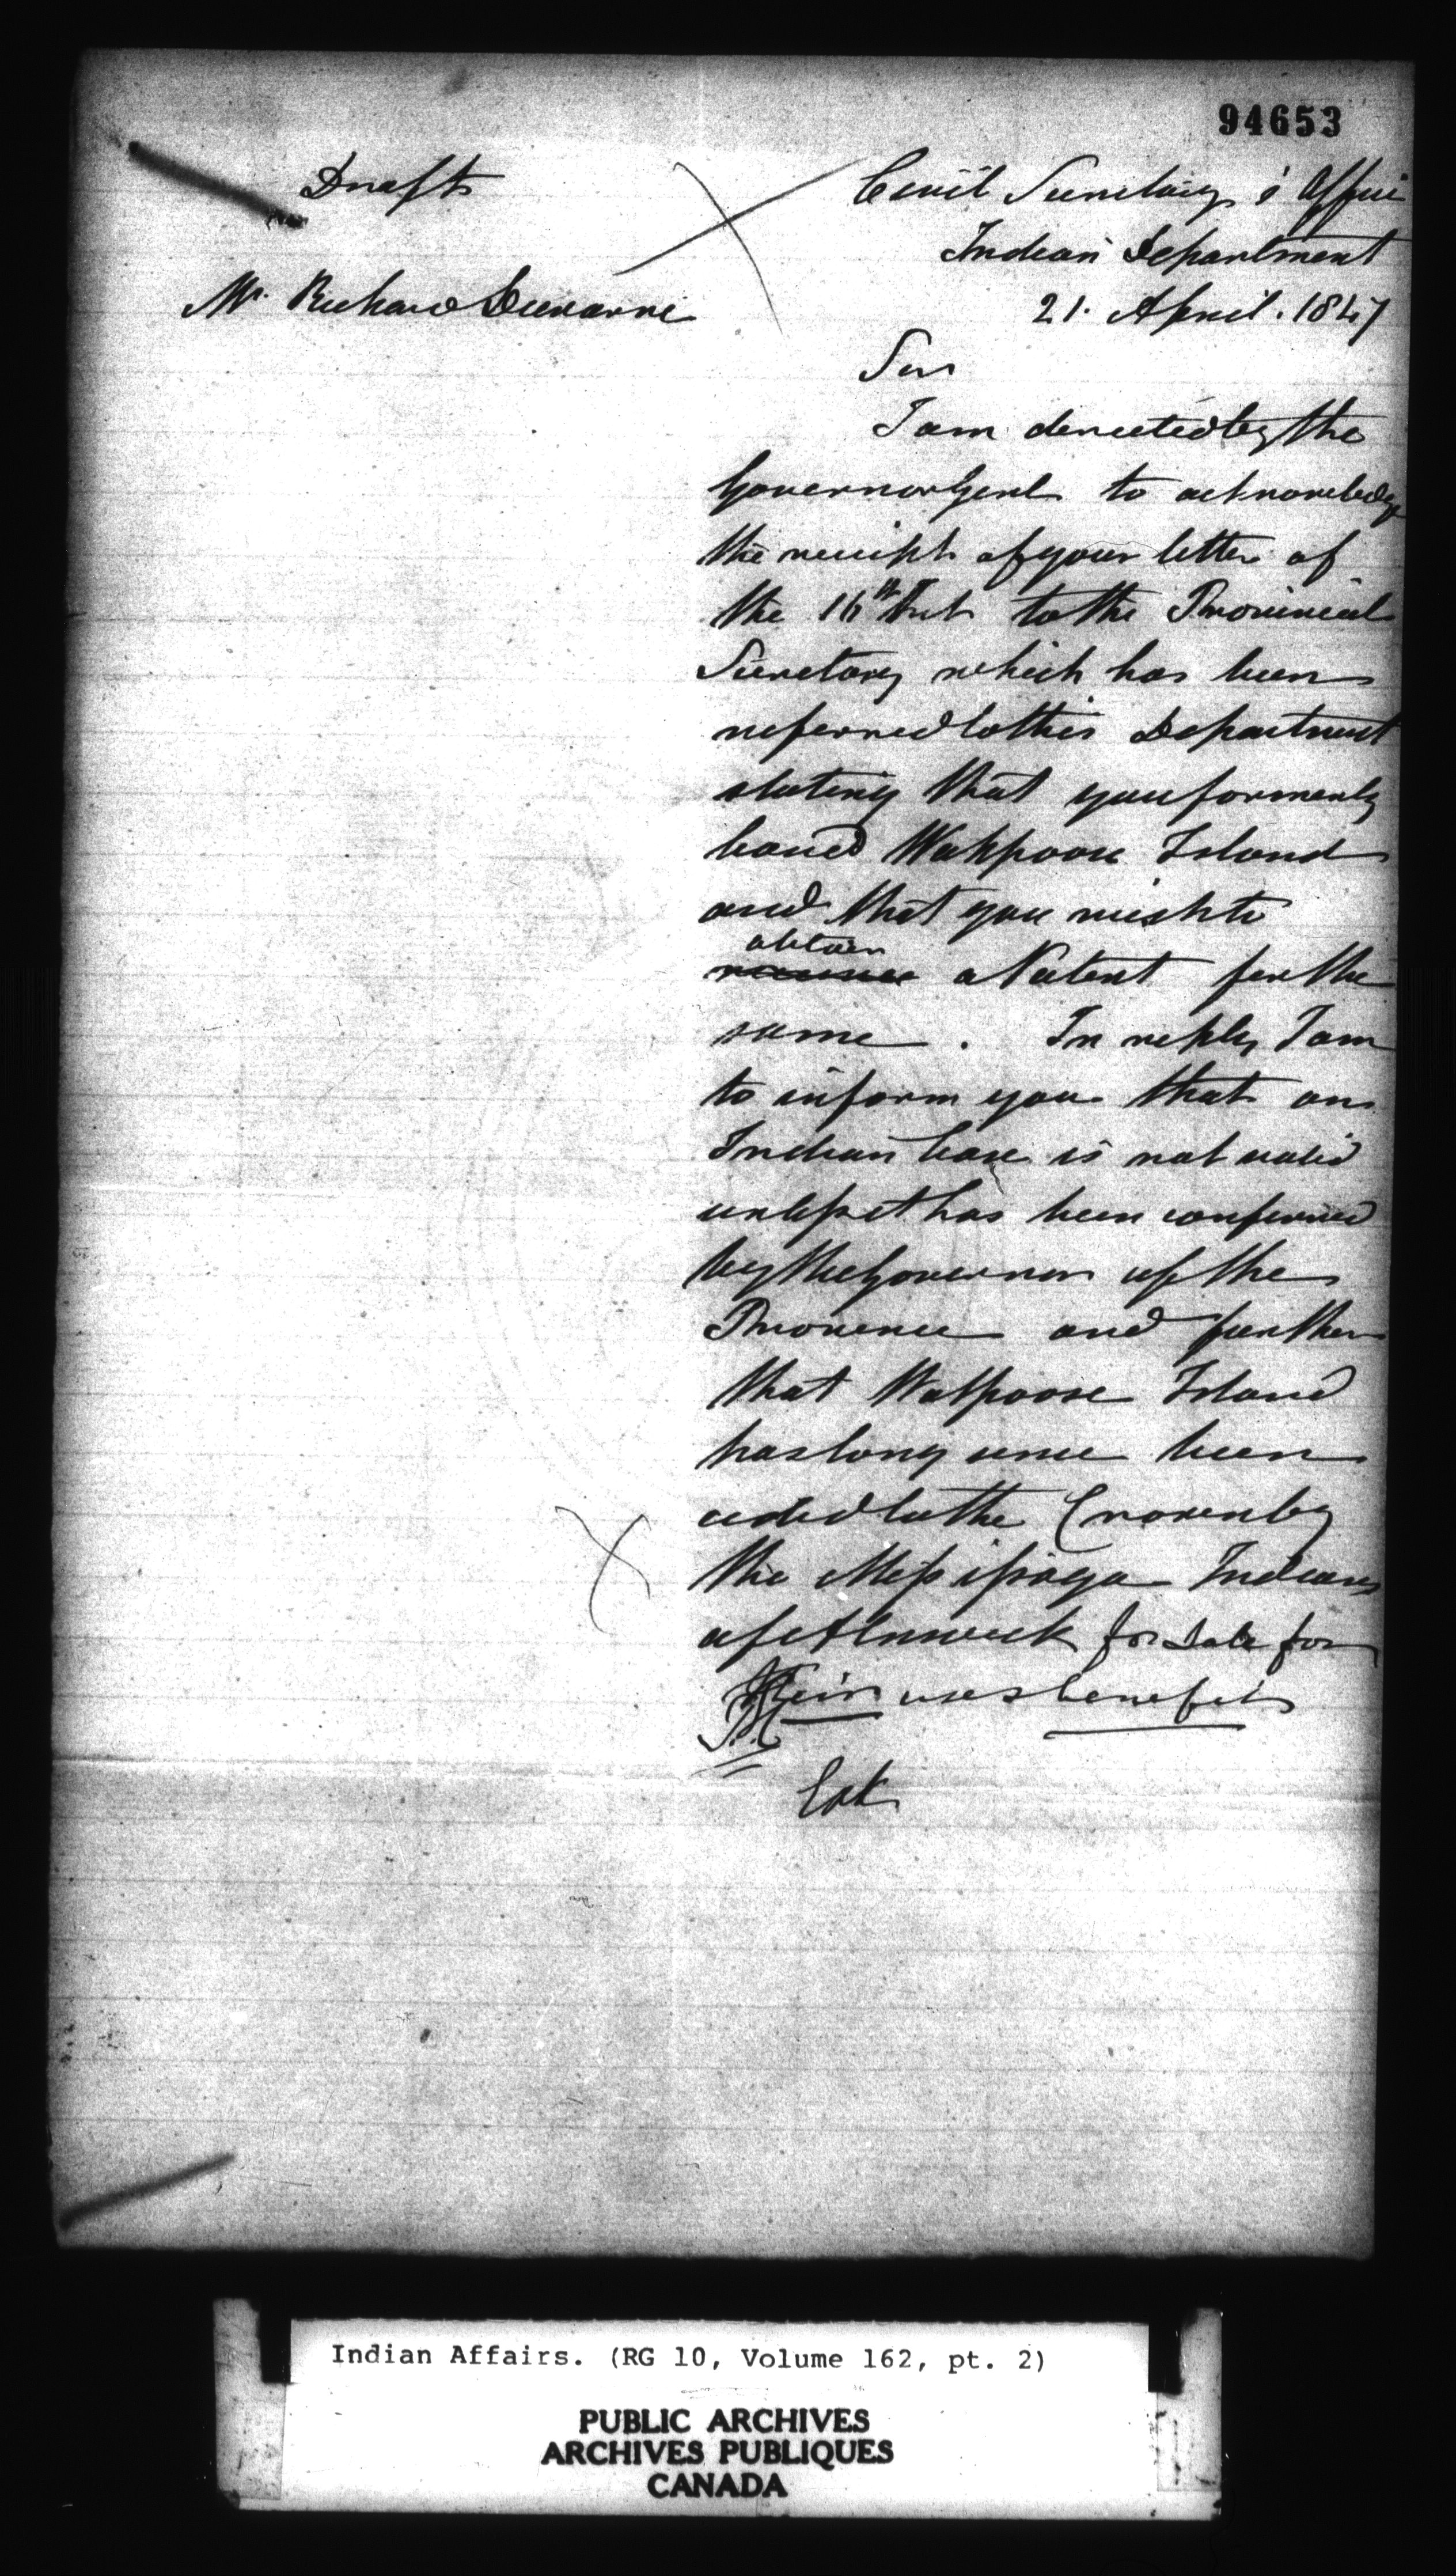 94653
Draft
Civil Secretary's Office
Indian Department
Mr. Richard
21. April. 1847
Sir
I am directed by the
Governor Genl to acknowledge
the receipt of your letter of
the 16th Inst to the Provincial
Secretary which has been
referred to this Department
stating that you formerly
leased Wahpoose Island
and that you wish to
obtain
a Patent for the
same. In reply I am
to inform you that an
Indian lease is not valid
unless it has been confirmed
by the Governor of the
Province and further
that Wahpoose Island
has long since been
ceded to the Crown by
the Mississaga Indians
of Alnwick for sale for
their use & benefit
Indian Affairs. (RG 10, Volume 162, pt. 2)
PUBLIC ARCHIVES
ARCHIVES PUBLIQUES
CANADA